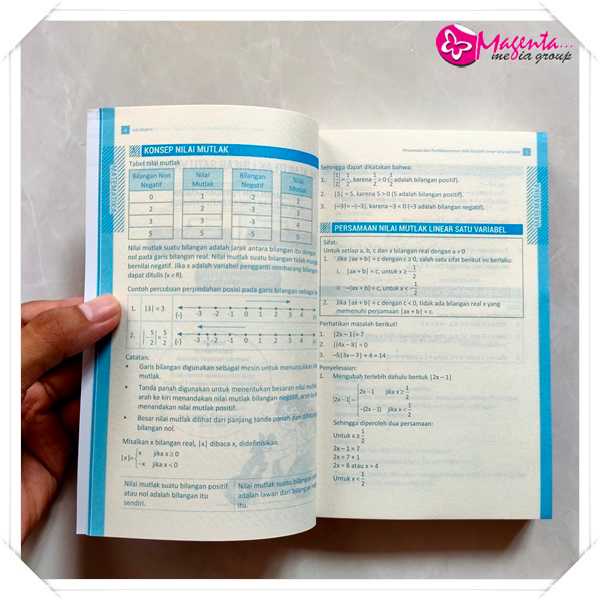 Magenta...
media group
4
KONSEP NILAI MUTLAK
Tabel nilai mutlak
Bilangan Non Negatif Nilai Mutlak Bilangan Negatif Nilai Mutlak
0 1
2 2
3 3 -3
5 5 -5 5
Nilai mutlak suatu bilangan adalah jarak antara bilangan itu dengan
nol pada garis bilangan real. Nilai mutlak suatu bilangan tidak
bernilai negatif. Jika x adalah variabel pengganti sembarang bilangan
dapat ditulis (x ∈ R).
Contoh percobaan perpindahan posisi pada garis bilangan sebagai
1. |3| = 3 (-) -3 -2 -1 0 1 2 3 4
2. (-) -3 -2 -1 0 1 2 3 4
Catatan:
• Garis bilangan digunakan sebagai mesin untuk menunjukkan
mutlak.
• Tanda panah digunakan untuk menentukan besaran nilai
arah ke kiri menandakan nilai mutlak bilangan negatif,
menandakan nilai mutlak positif.
• Besar nilai mutlak dilihat dari panjang tanda panah dan
bilangan nol.
Misalkan x bilangan real, |x| dibaca x, didefinisikan
|x|= x jika x ≥ 0
-x jika x < 0
Nilai mutlak suatu bilangan positif
atau nol adalah bilangan itu
sendiri.
Nilai mutlak suatu bilangan
adalah lawan dari bilangan
itu.
Sehingga dapat dikatakan bahwa:
1. |1/2| = 1/2, karena 1/2 > 0 (1/2 adalah bilangan positif).
2. |5| = 5, karena 5 > 0 (5 adalah bilangan positif).
3. |−3| = −(−3), karena −3 < 0 (−3 adalah bilangan negatif).
PERSAMAAN NILAI MUTLAK LINEAR SATU VARIABEL
Sifat:
Untuk setiap a, b, c dan x bilangan real dengan a ≠ 0
1. Jika |ax + b| = c dengan c ≥ 0, salah satu sifat berikut ini berlaku:
2. Jika |ax + b| = c dengan c < 0, tidak ada bilangan real x yang
memenuhi persamaan |ax + b| = c
Perhatikan masalah berikut!
1. |2x − 1| = 7
2. |(4x − 8| = 0
3. −5|3x − 7| + 4 = 14
Penyelesaian:
1. Mengubah terlebih dahulu bentuk |2x − 1|
|2x-1|= 2x-1 jika x ≥ 1/2
-(2x-1) jika x < 1/2
Sehingga diperoleh dua persamaan:
Untuk x ≥ 1/2
2x − 1 = 7
2x = 7 + 1
2x = 8 atau x = 4
Untuk x < 1/2